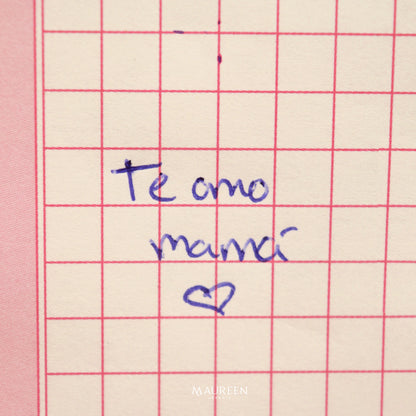 Te amo
mamá
MAUREEN